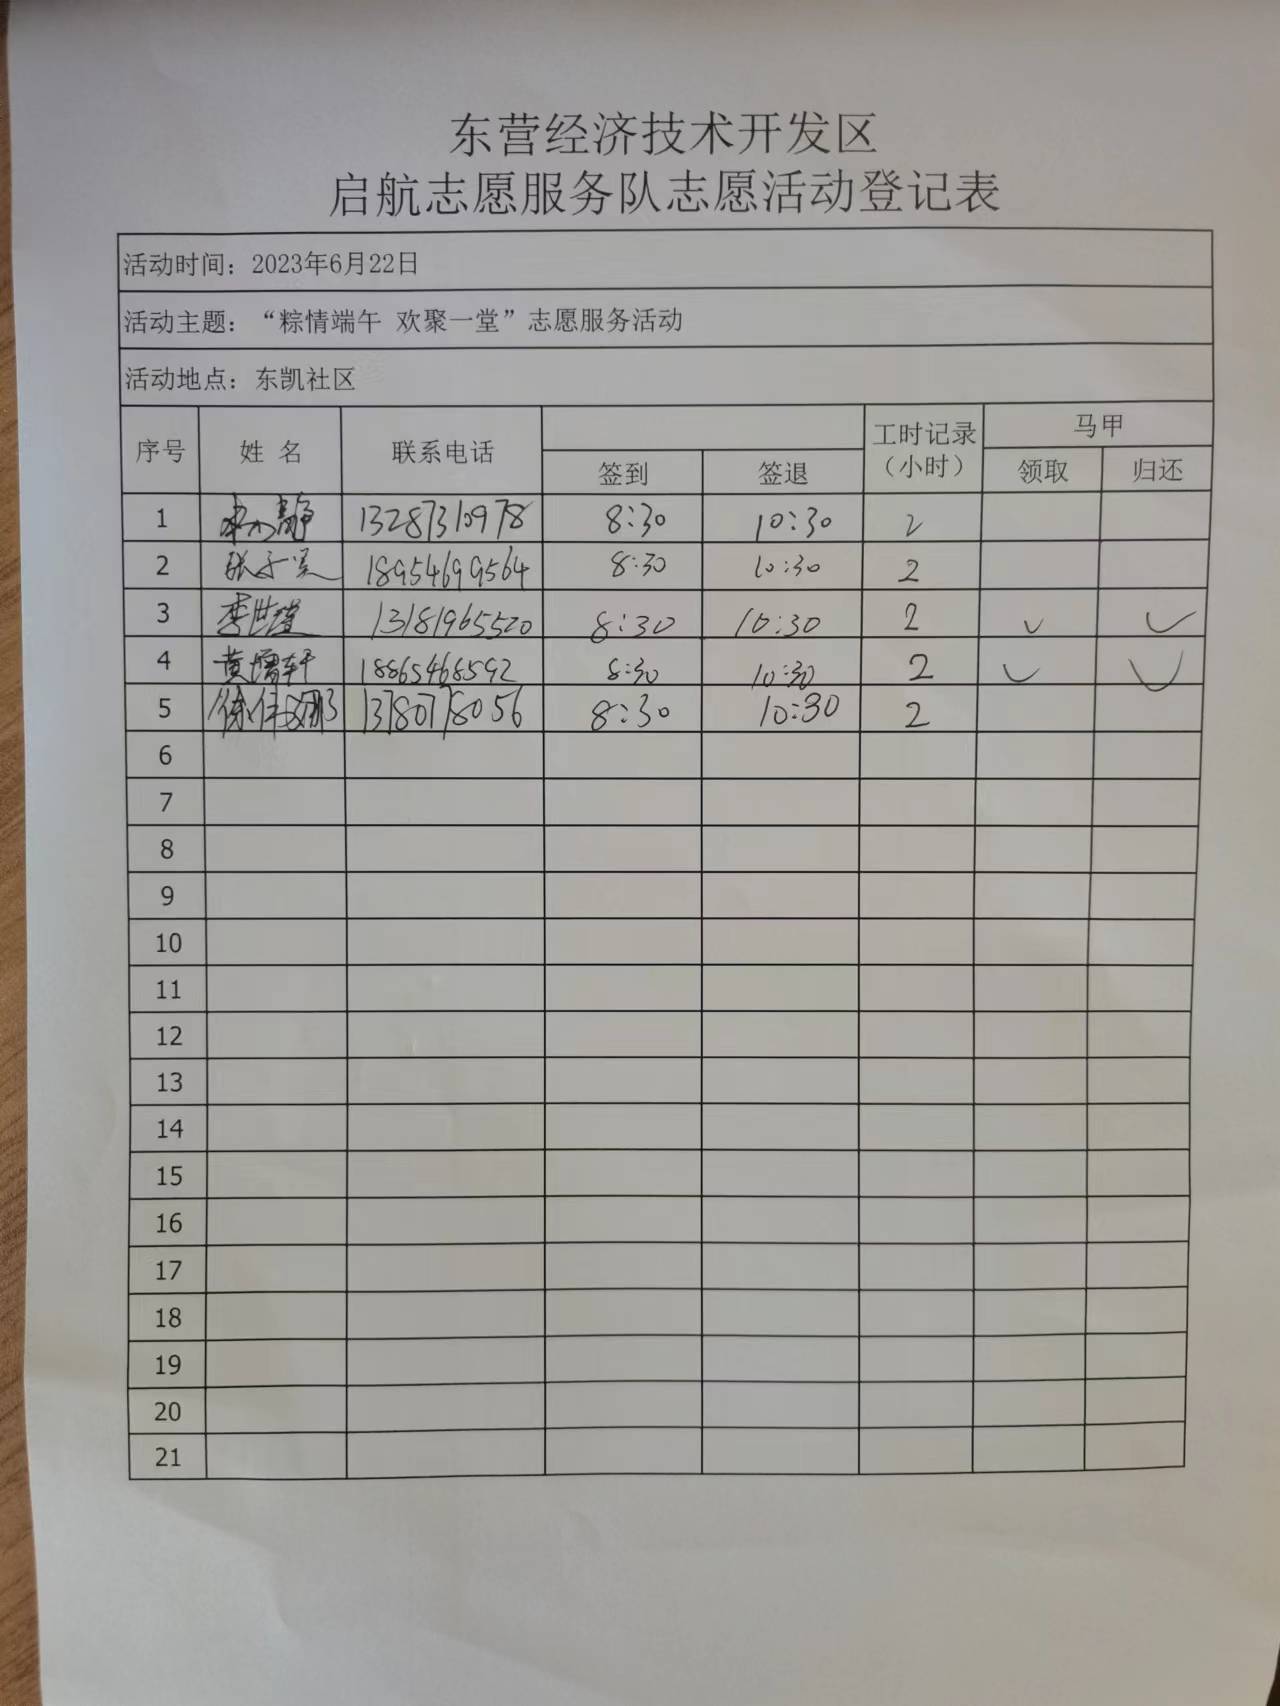 东营经济技术开发区
启航志愿服务队志愿活动登记表
活动时间：2023年6月22日
活动主题：“粽情端午 欢聚一堂”志愿服务活动
活动地点：东凯社区
序号 姓 名 联系电话 签到 签退 工时记录（小时） 马甲 领取 归还
1 静 13287310978 8:30 10:30 2
2 张子昊 18954699564 8:30 10:30 2
3 李世 13181965520 8:30 10:30 2 ✓ ✓
4 黄 轩 18865468592 8:30 10:30 2 ✓ ✓
5 徐 娜 13780778056 8:30 10:30 2
6
7
8
9
10
11
12
13
14
15
16
17
18
19
20
21